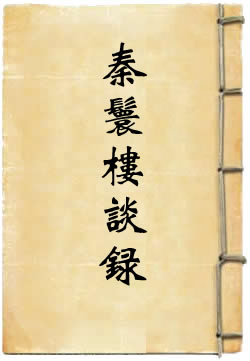 秦鬟樓談録